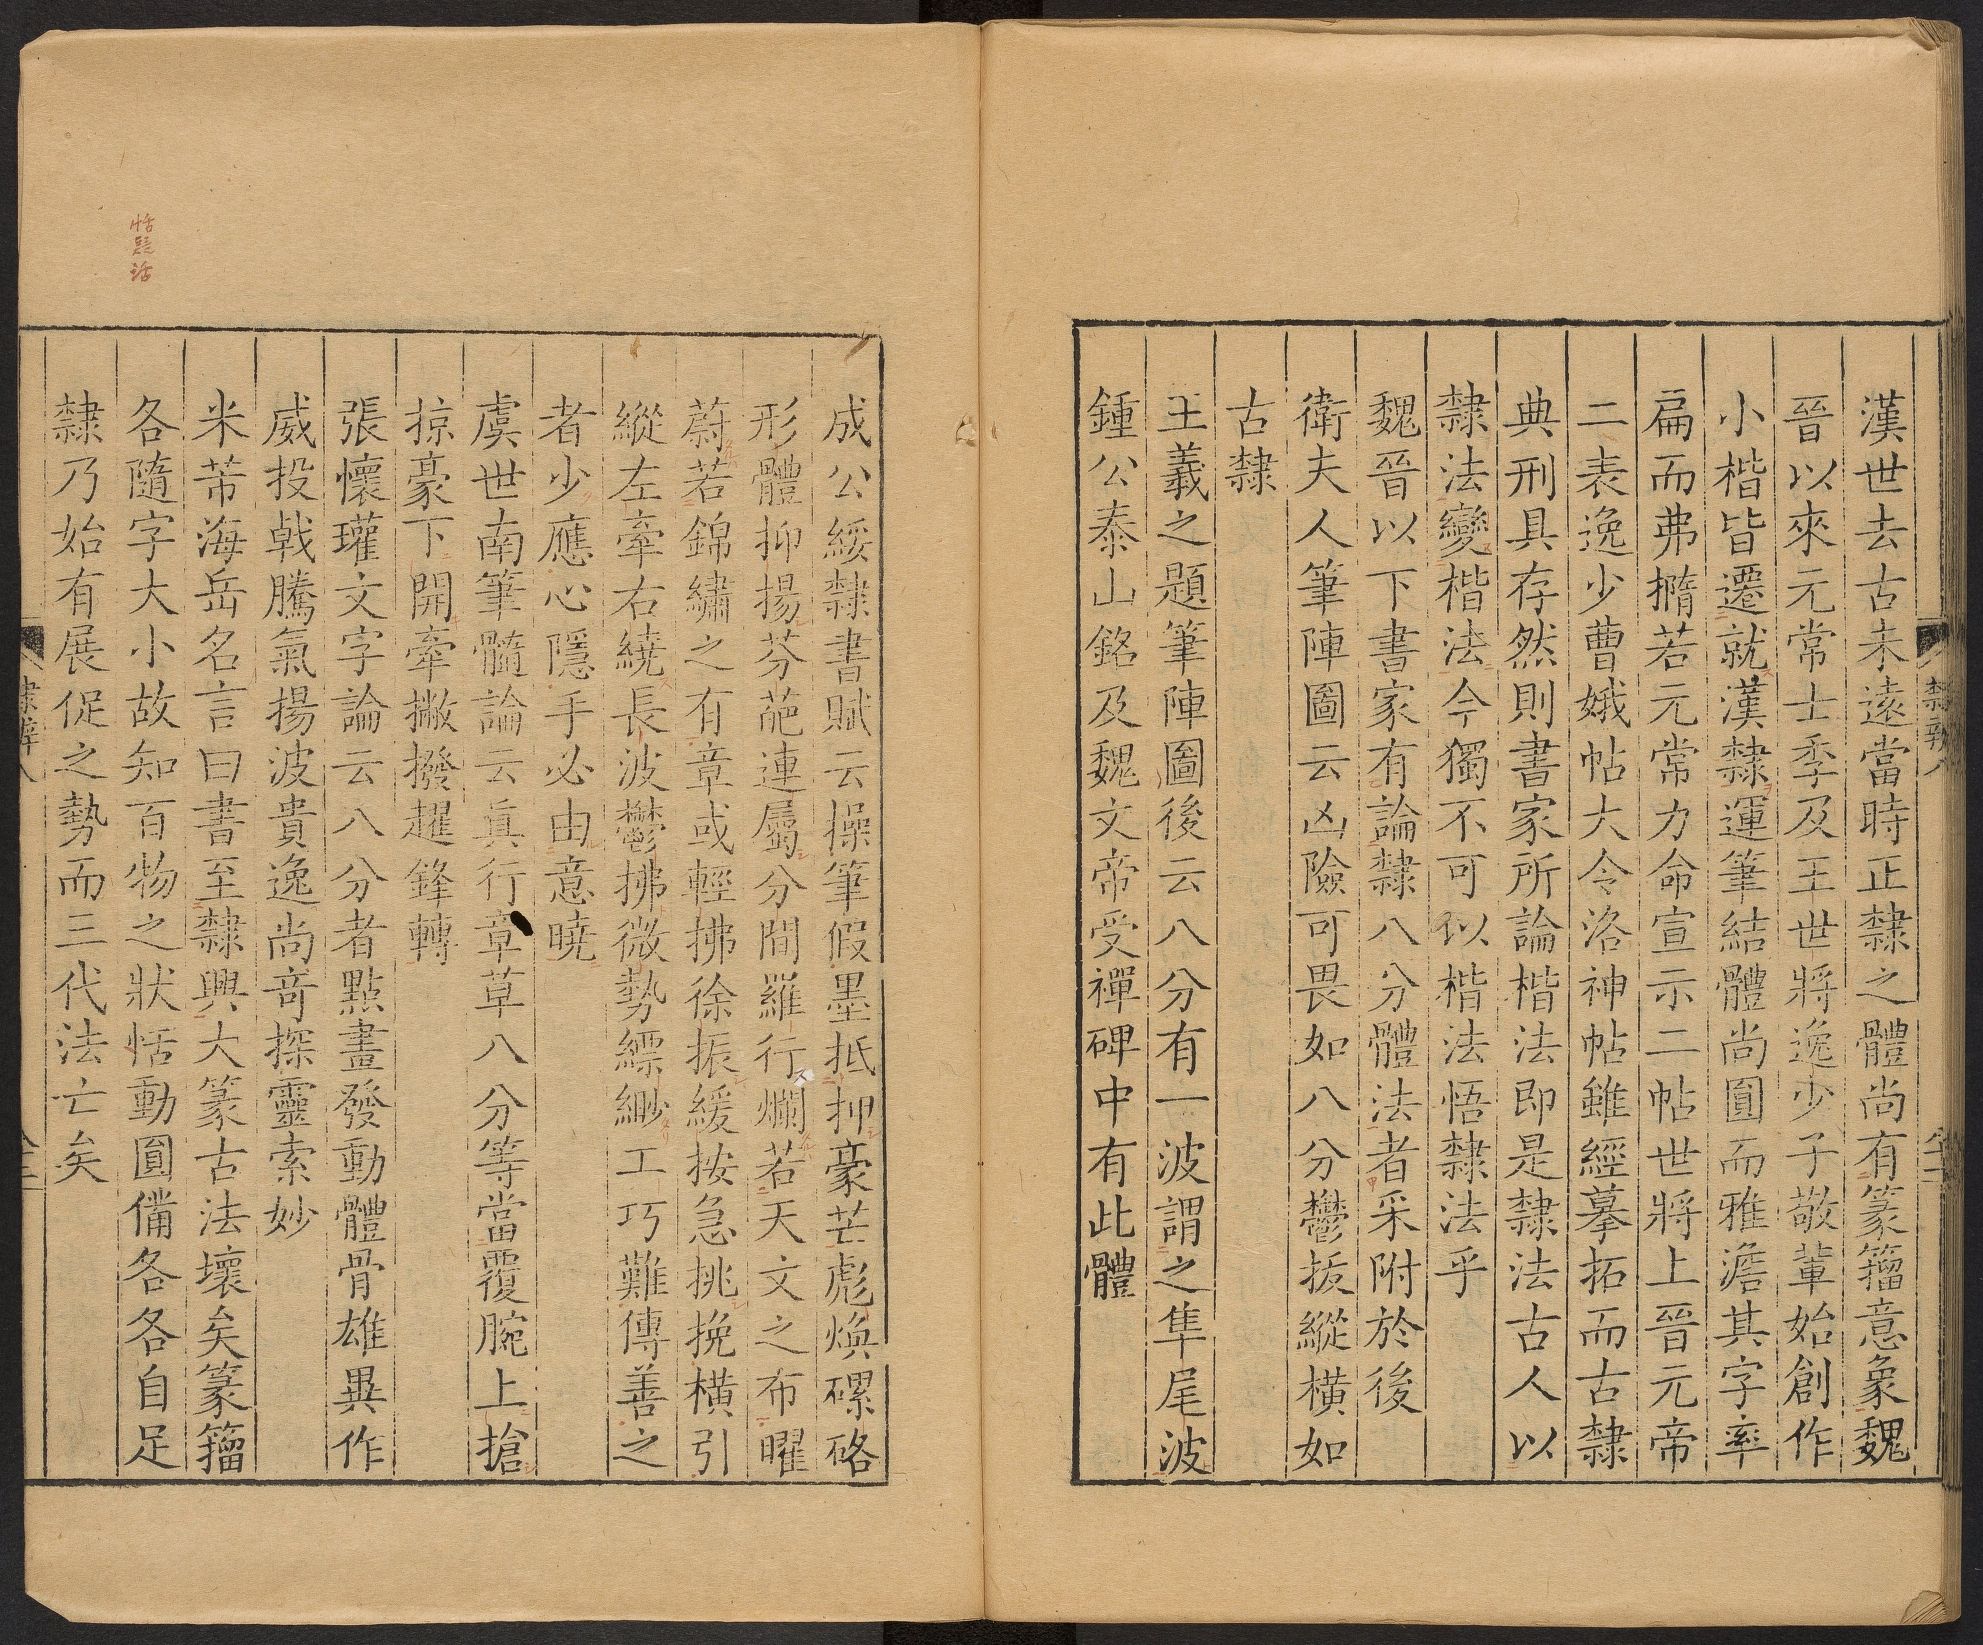 漢世去古未遠當時正隸之體尚有篆籀意象魏
晉以來元常士季及王世將逸少子敬輩始創作
小楷皆遷就漢隸運筆結體尚圓而雅澹其字率
扁而弗撱若元常力命宣示二帖世將上晉元帝
二表逸少曹娥帖大令洛神帖雖經摹拓而古隸
典刑具存然則書家所論楷法即是隸法古人以
隸法變楷法今獨不可以楷法悟隸法乎
魏晉以下書家有論隸八分體法者采附於後
衛夫人筆陣圖云凶險可畏如八分鬱拔縱橫如
古隸
王羲之題筆陣圖後云八分有一波謂之隼尾波
鍾公泰山銘及魏文帝受禪碑中有此體
成公綏隸書賦云操筆假墨抵押豪芒彪煥磥硌
形體抑揚芬葩連屬分間羅行爛若天文之布曜
蔚若錦繡之有章或輕拂徐振緩按急挑挽橫引
縱左牽右繞長波鬱拂微勢縹緲工巧難傳善之
者少應心隱手必由意曉
虞世南筆髓論云真行章草八分等當覆腕上搶
掠豪下開牽撇撥趯鋒轉
張懷瓘文字論云八分者點畫發動體骨雄異作
威投戟騰氣揚波貴逸尚奇探靈索妙
米芾海岳名言曰書至隸興大篆古法壞矣篆籀
各隨字大小故知百物之狀恬動圓備各各自足
隸乃始有展促之勢而三代法亡矣
隸辨八
恬疑活